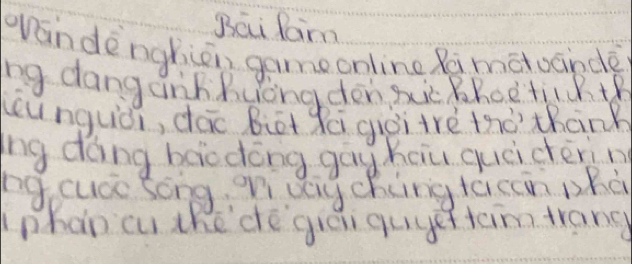 Bài làm
Vấn đề nghiện game online là một vấn đề
ng đang ảnh hưởng đến sức khoẻ
người, đặc biệt là giới trẻ trở thành
ng đáng báo động gây hậu quả đến
ng cuộc sống. Vì vậy chúng ta cần phả
phán cụ thể để giải quyết tâm trạng